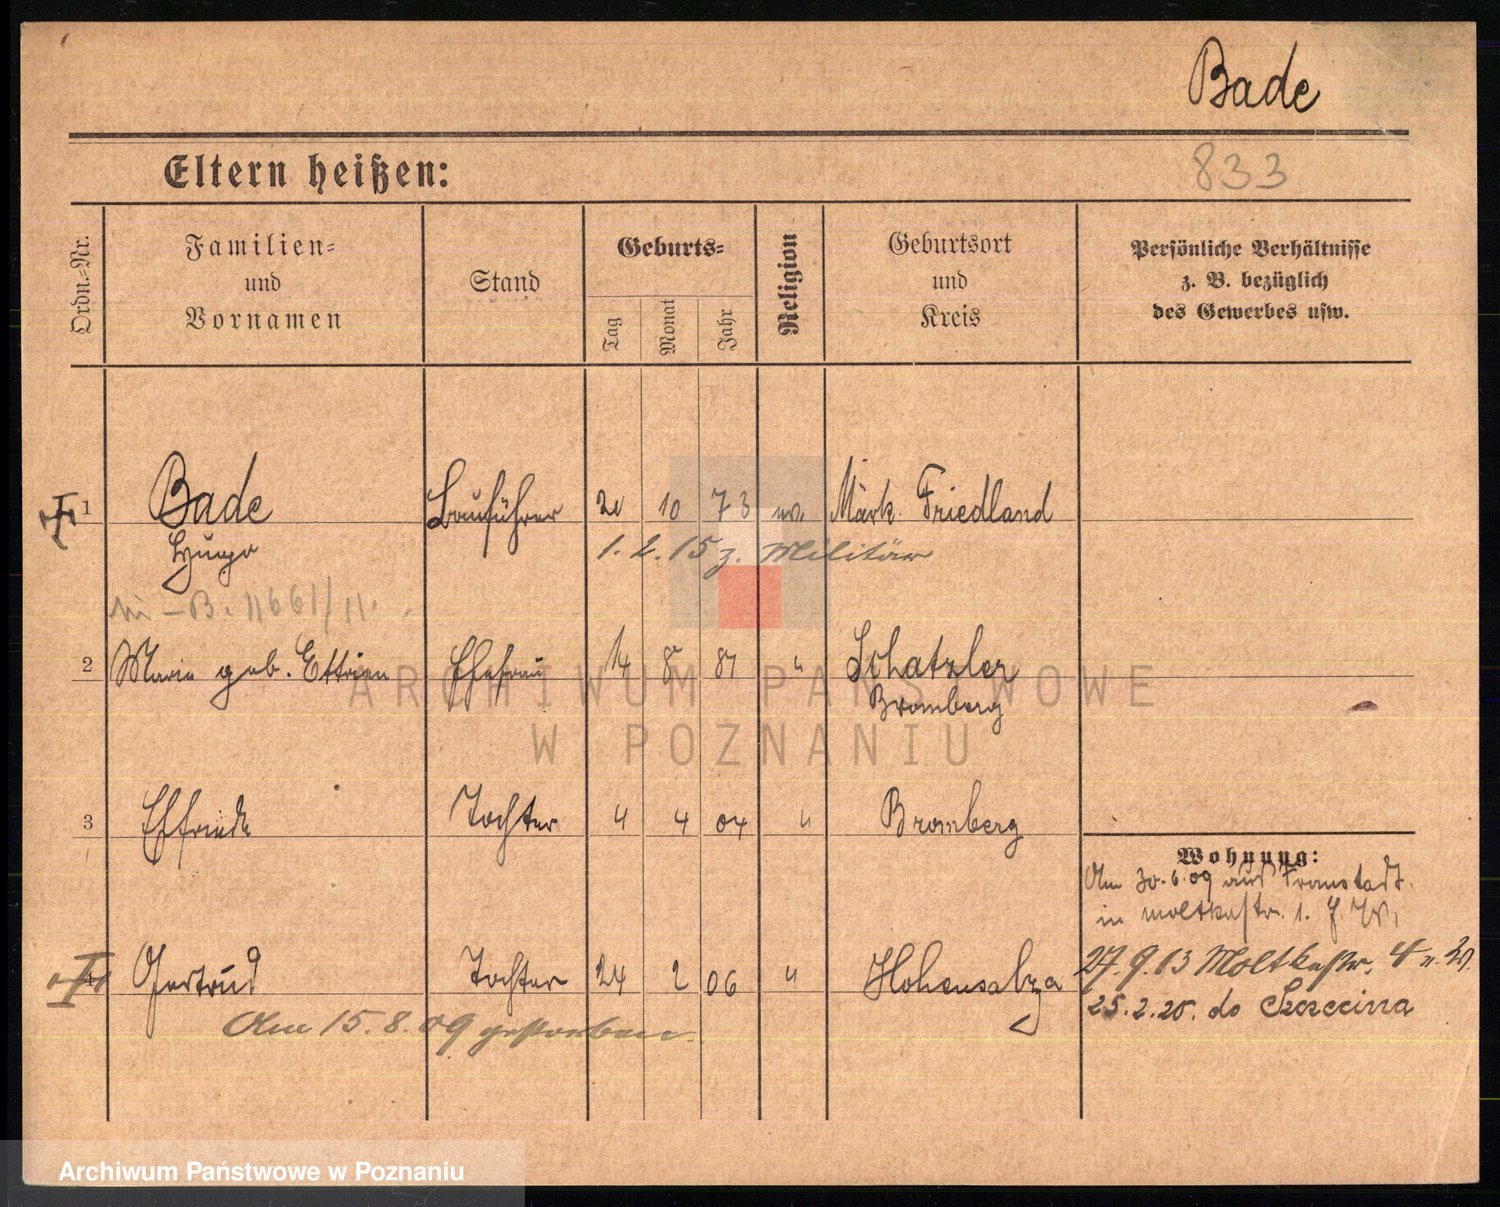 Bade
Eltern heißen:
833
Ordn.-Nr.
Familien-
und
Vornamen
Stand
Geburts-
Tag
Monat
Jahr
Religion
Geburtsort
und
Kreis
Persönliche Verhältnisse
z. B. bezüglich
des Gewerbes usw.
1 Bade Bauführer 20 10 73 ev. Märk. Friedland
Hugo 1. 2. 15 z. Militär
B. 11661/11.
2 Marie geb. Ettrien Ehefrau 14 8 81 " Schatzler
Bromberg
3 Elfriede Tochter 4 4 04 " Bromberg
Wohnung:
Am 30.6.09 aus Fraustadt.
in Moltkestr. 1.
4 Gertrud Tochter 24 2 06 " Hohensalza
27.9.13 Moltkestr. 4
Am 15.8.09 gestorben.
25.2.20. do Szczecina
ARCHIWUM PAŃSTWOWE
W POZNANIU
Archiwum Państwowe w Poznaniu